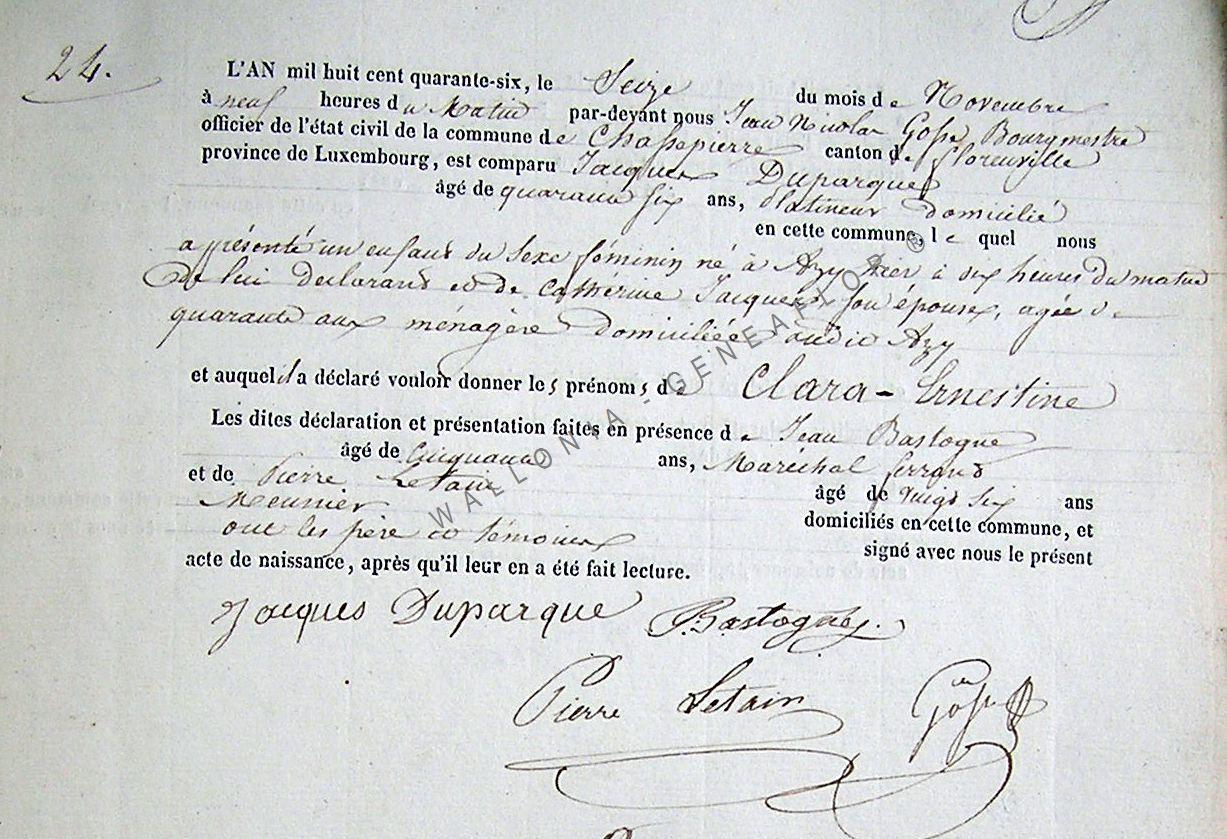 24.
L'AN mil huit cent quarante-six, le Seize du mois de Novembre
à neuf heures du Matin par-devant nous Jean Nicolas Gosse Bourgmestre
officier de l'état civil de la commune de Chassepierre canton de Florenville
province de Luxembourg, est comparu Jacques Duparque
âgé de quarante six ans, platineur domicilié
en cette commune, le quel nous
a présenté un enfant du sexe féminin né à Azy hier à six heures du matin
de lui déclarant et de Catherine Jacques son épouse, agée de
quarante ans ménagère domiciliée audit Azy
et auquel il a déclaré vouloir donner les prénoms de Clara-Ernestine
Les dites déclaration et présentation faites en présence de Jean Bastogne
âgé de cinquante ans, Maréchal ferrant
et de Pierre Letain âgé de vingt six ans
Meunier domiciliés en cette commune, et
ont les père et témoins signé avec nous le présent
acte de naissance, après qu'il leur en a été fait lecture.
Jacques Duparque Bastogne
Pierre Letain Gosse
WALLONIA - GENEAFLOR ®